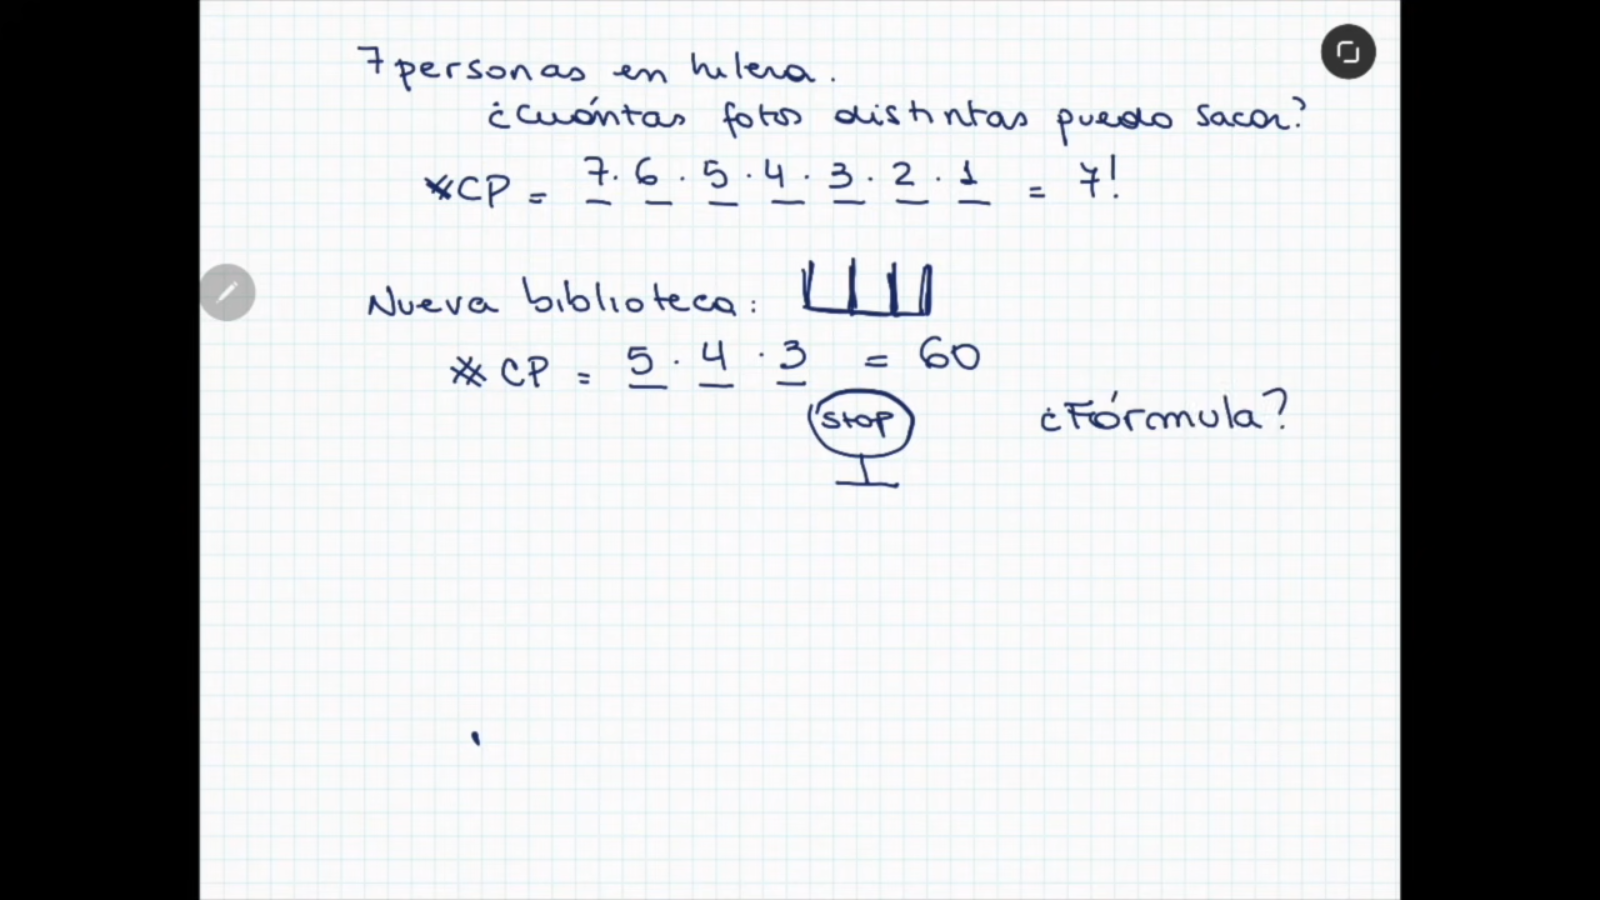 7 personas en hilera.
¿Cuántas fotos distintas puedo sacar?
*CP = 7 . 6 . 5 . 4 . 3 . 2 . 1 = 7!
Nueva biblioteca:
* CP = 5 . 4 . 3 = 60
STOP
¿Fórmula?